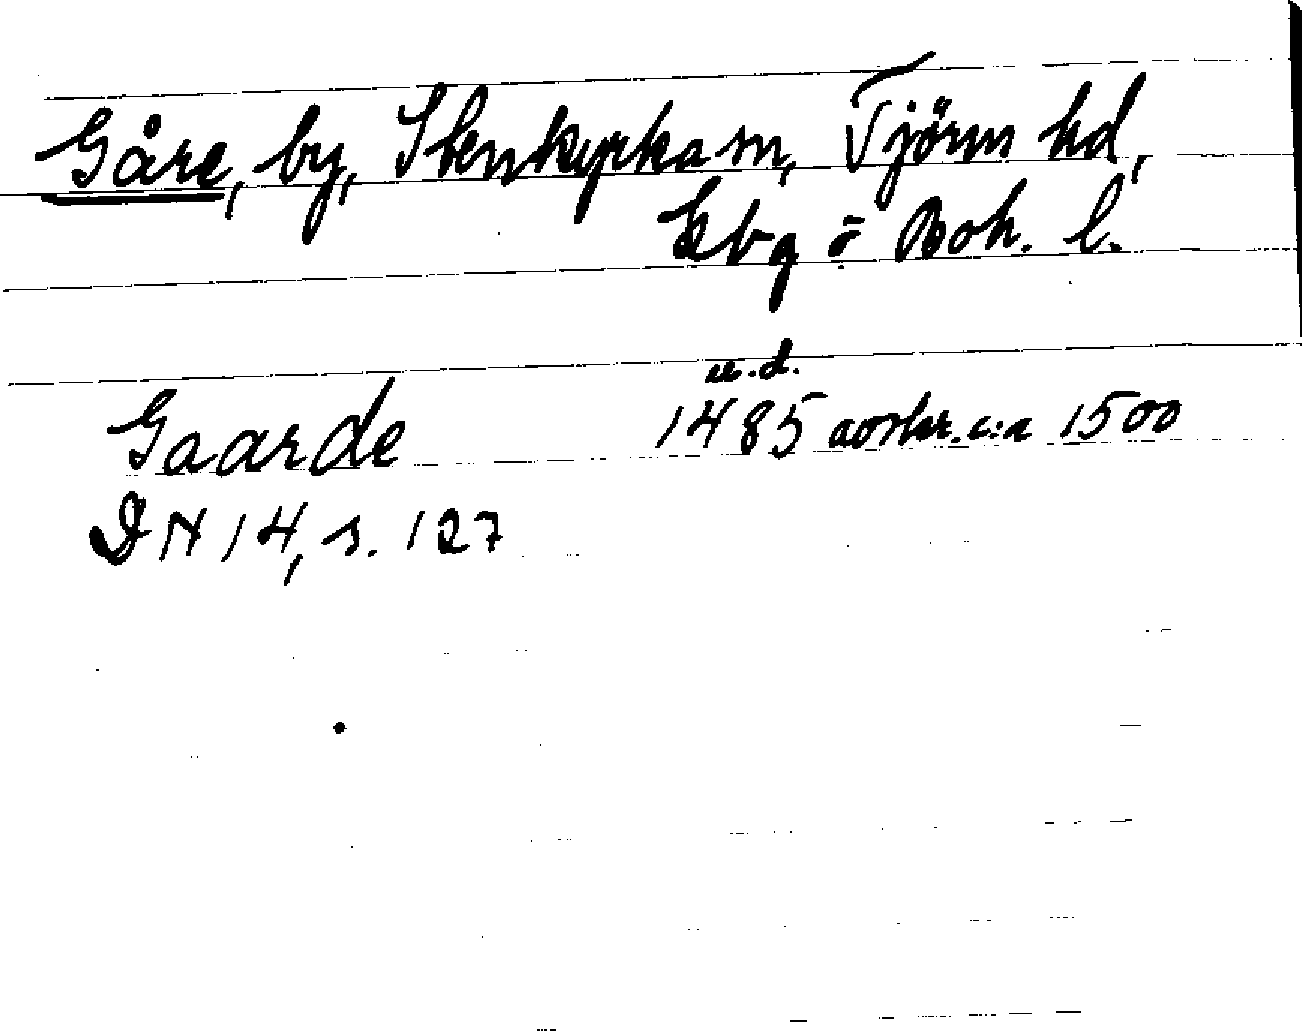 Gåre, by, Stenkyrka sn, Tjörns hd,
Gbg o Boh. l.
u.d.
Gaarde 1485 avskr. c:a 1500
DN 14, s. 127